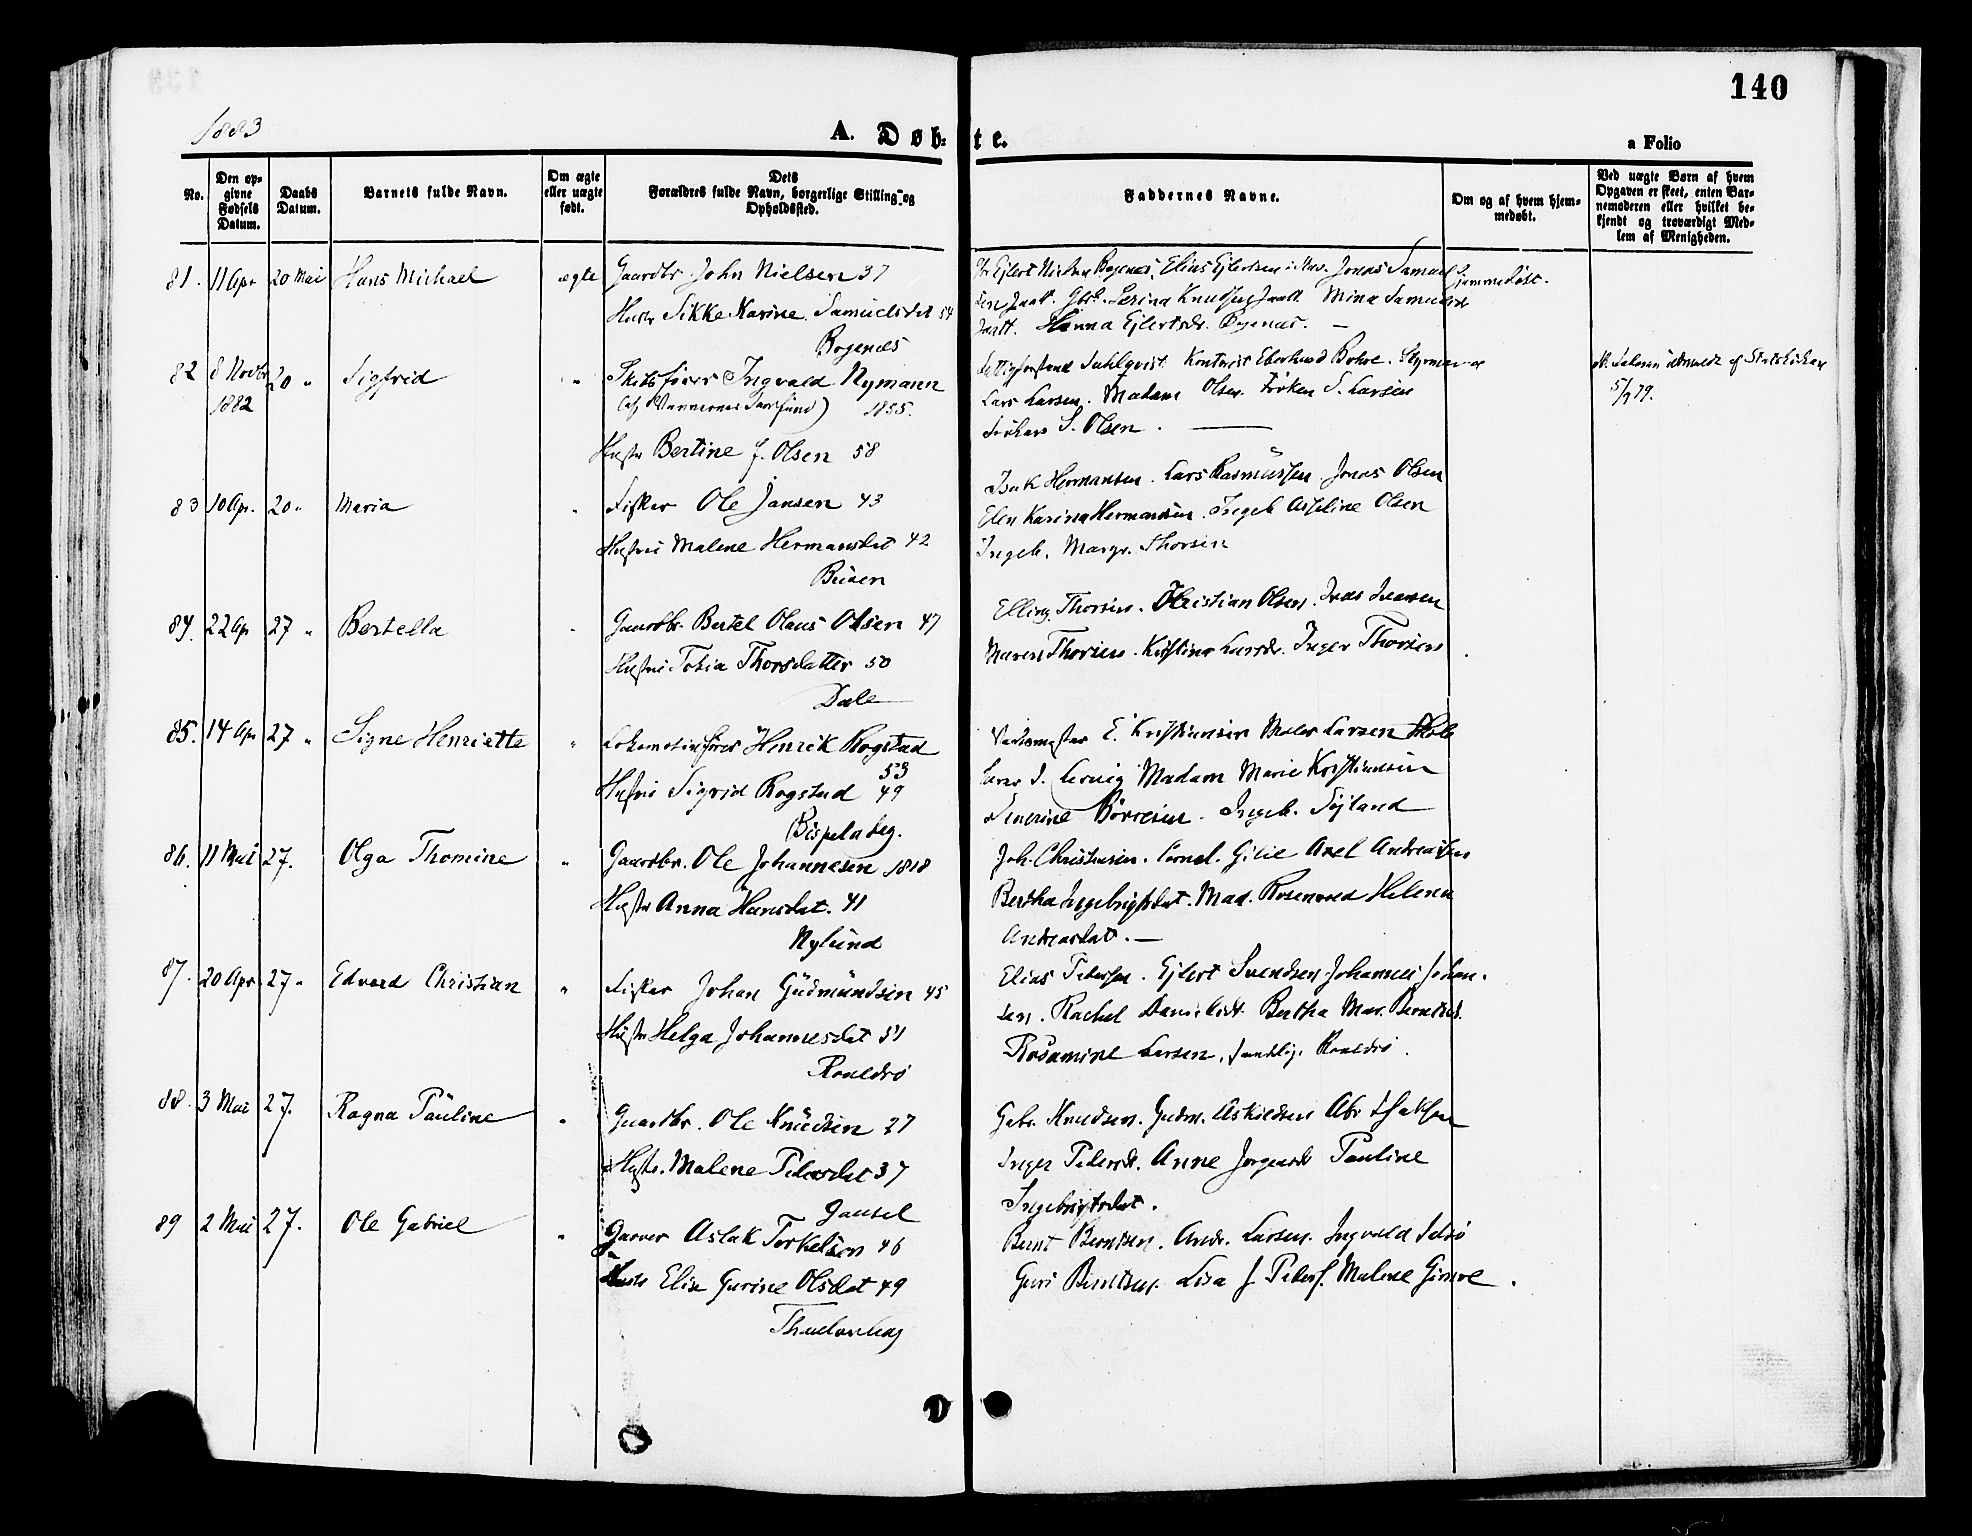 140
1883
A. Døb- te.
a Folio
No.
Den op-
givne
Fødsels
Datum.
Daabs
Datum.
Barnets fulde Navn.
Om ægte
eller uægte
født.
Dets
Forældres fulde Navn, borgerlige Stilling og
Opholdssted.
Faddernes Navne.
Om og af hvem hjem-
medøbt.
Ved uægte Børn af hvem
Opgaven er skeet, enten Bar-
nemoderen eller hvilket be-
kjendt og troværdigt Med-
lem af Menigheden.
81. 11 Apr 20 Mai Hans Michael ægte Gaardbr John Nielsen 37
Hustr Sikke Karine Samuelsdat 54
Bogenæs
Ejlert Nielsen Bogenæs, Elias Ejlertsen Jonas Samuel
sen Gbr. Serina Knudsen Mina Samuelsdr
Hanna Ejlertsdr. Bogenæs. —
Hjemmedøbt.
82 8 Novbr 20 " Sigfrid " Skibsfører Ingvald Nymann
1882 1855.
Hustr Bertine f. Olsen 58
Dahlqvist Kontorist Eberhard Bohre. Styrmand
Lars Larsen. Madam Olsen. Frøken S. Larsen
Frøken S. Olsen. —
udmeldt af Statskirken
5/9 79.
83 10 Apr. 20 " Maria " Fisker Ole Jansen 43
Hustru Malene Hermansdat 42
Buøen
Isak Hermansen. Lars Rasmussen. Jonas Olsen
Elen Karina Hermansen. Ingeb Asseline Olsen
Ingeb. Margr. Thorsen
84. 22 Ap 27 " Bertella " Gaardbr. Bertel Olaus Olsen 47
Hustru Tobia Thorsdatter 50
Dale
Elling Thorsen. Christian Olsen. Ivar Ivarsen
Maren Thorsen. Kristine Larsdr. Inger Thorsen.
85. 14 Ap 27 " Signe Henriette " Lokomotivfører Henrik Rogstad
53
Hustru Sigrid Rogstad 49
Bispeladeg.
E. Kristiansen Maler Larsen
Madam Marie Kristiansen
Severine Børresen. Ingeb. Søyland
86. 11 Mai 27. Olga Thomine " Gaardbr. Ole Johannesen 1818
Hustr Anna Hansdat. 41
Nylund
Joh. Christensen. Cornel. Gilie Axel Andreassen
Bertha Ingebrigtsdat. Mad. Rosenvold Helena
Andreasdat. —
87. 20 Apr 27 " Edvard Christian " Fisker Johan Gudmundsen 45
Hustr Helga Johannesdat 51
Roaldsø
Elias Pedersen. Ejlert Svendsen. Johannes Johan-
sen. Rachel Danielsdt. Bertha Mar. Berntsd.
Rosamine Larsen, samtlige Roaldsø.
88. 3 Mai 27. Ragna Pauline " Gaardbr. Ole Knudsen 27
Hustr. Malene Pedersdat 37
Gausel
Gabr. Knudsen. Gudm. Askildsen Abr Isaksen
Inger Pedersdt. Anne Jørgensdt Pauline
Ingebrigtsdat.
89 2 Mai 27. Ole Gabriel " Garver Aslak Torkelsen 46
Hustr Elise Gurine Olsdat 49
Bernt Berntsen. Andr. Larsen. Ingvald
Guri Berntsen. Lisa J. Peders. Malene Gimre.
D